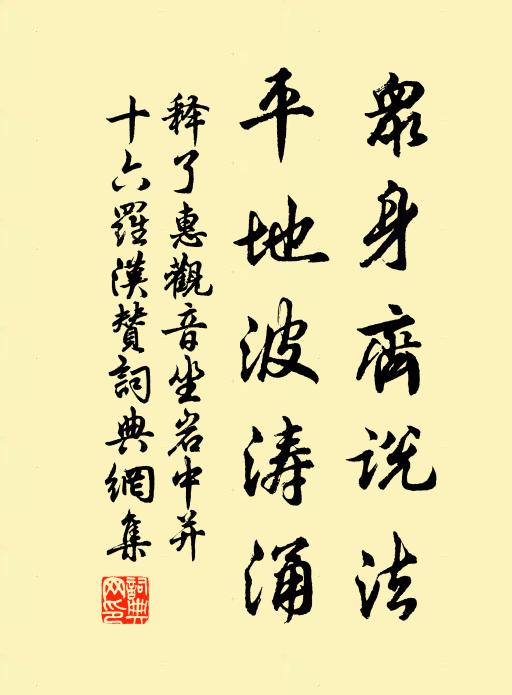 眾身齊說法
平地波濤涌
释了惠觀音坐岩中并
十六羅漢贊詞典網集
詞典網印